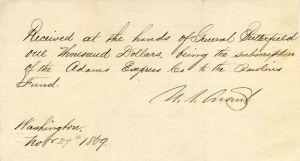 Received at the hands of General Butterfield
one Thousand Dollars, being the subscription
of the Adams Express Co to the Rawlins
Fund.
U. S. Grant
Washington,
Novr 27th 1869.